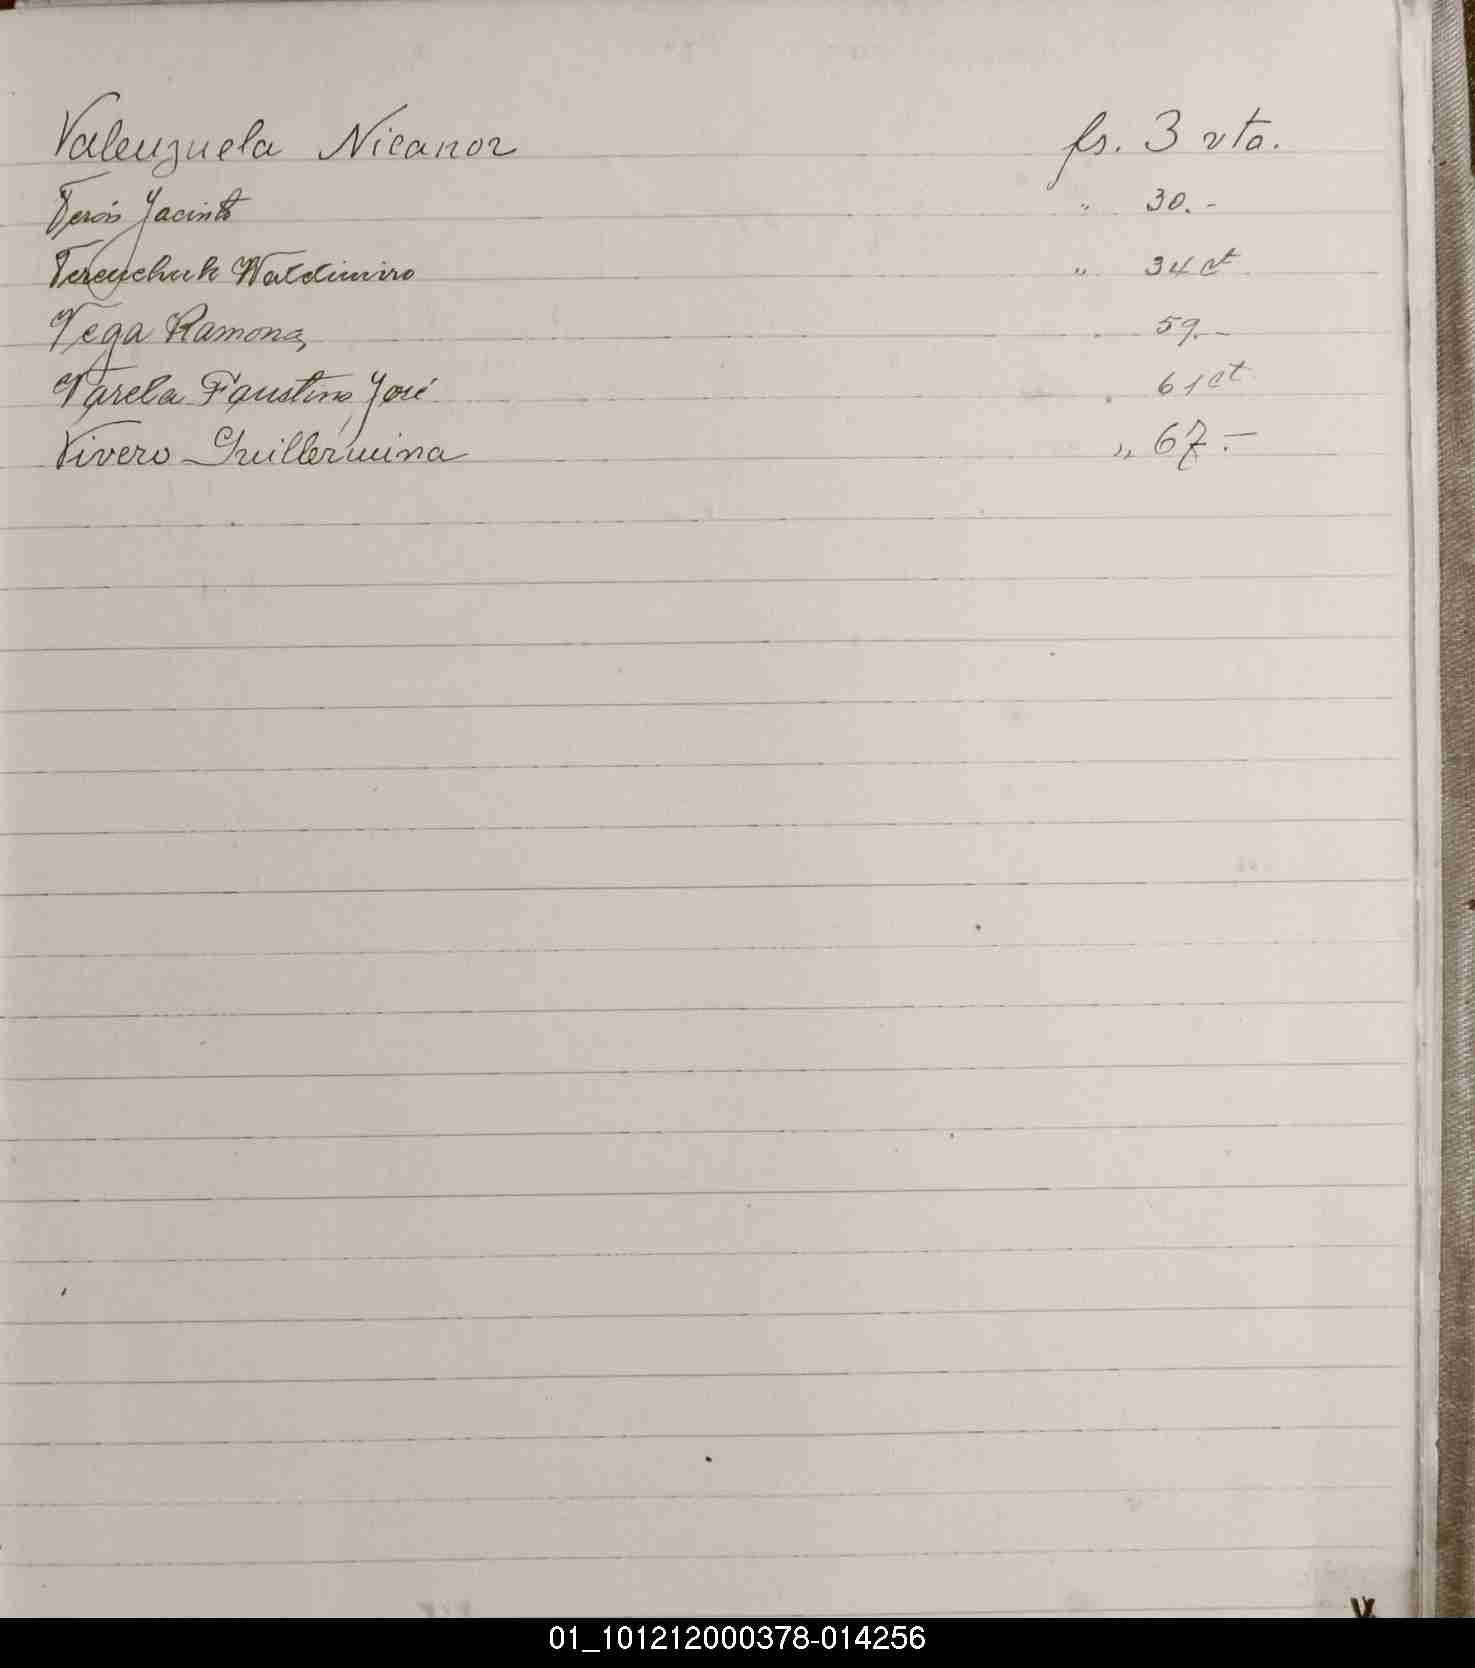 Valenzuela Nicanor fs. 3 vta.
Jacinto " 30.-
Terenchuk Waldimiro " 34 ct
Vega Ramona, . 59.-
Varela Faustino José . 61 ct
Vivero Guillermina " 67.-
V.
01_101212000378-014256